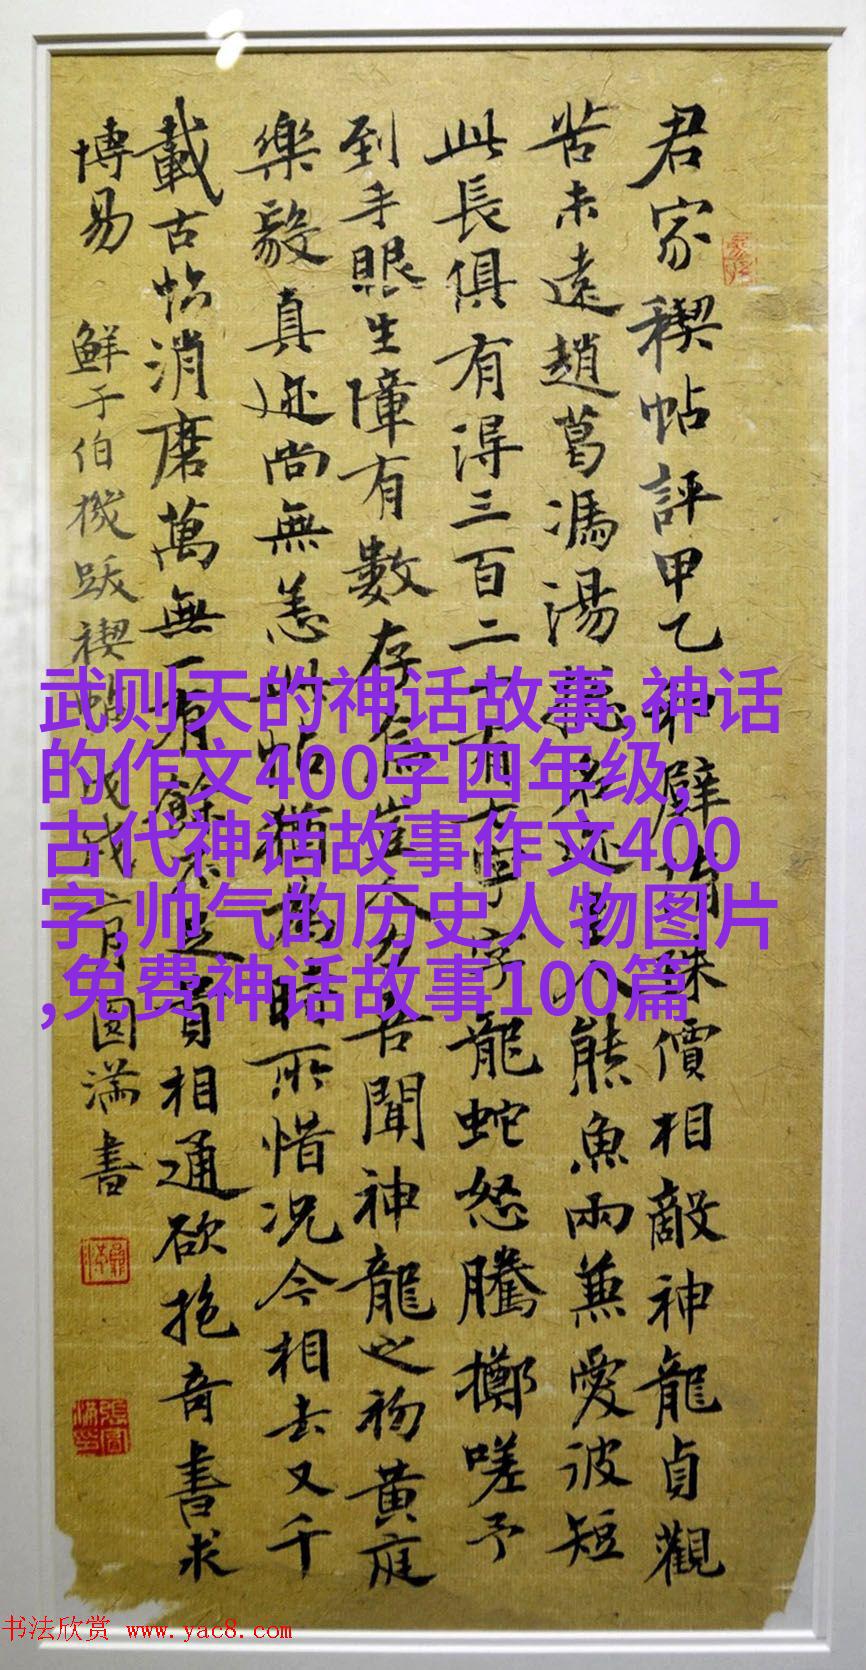 君家稧帖評甲乙和璧隋珠價相敵神龍貞觀
苦未遠趙葛馮湯名迹主人熊魚兩兼愛彼短
此長俱有得三百二十有字字龍蛇怒騰擲嗟予
到手眼生障有數存焉豈人力吾聞神龍之初黃庭
樂毅真迹尚無恙此帖猶為時所惜況今相去又千
載古帖消磨萬無一有餘不足貴相通欲抱奇書求
博易 鮮于伯機跋禊帖戊戌月圓滿書
武则天的神话故事,神话
的作文400字四年级,
古代神话故事作文400
字,帅气的历史人物图片
,免费神话故事100篇
书法欣赏 www.yac8.com